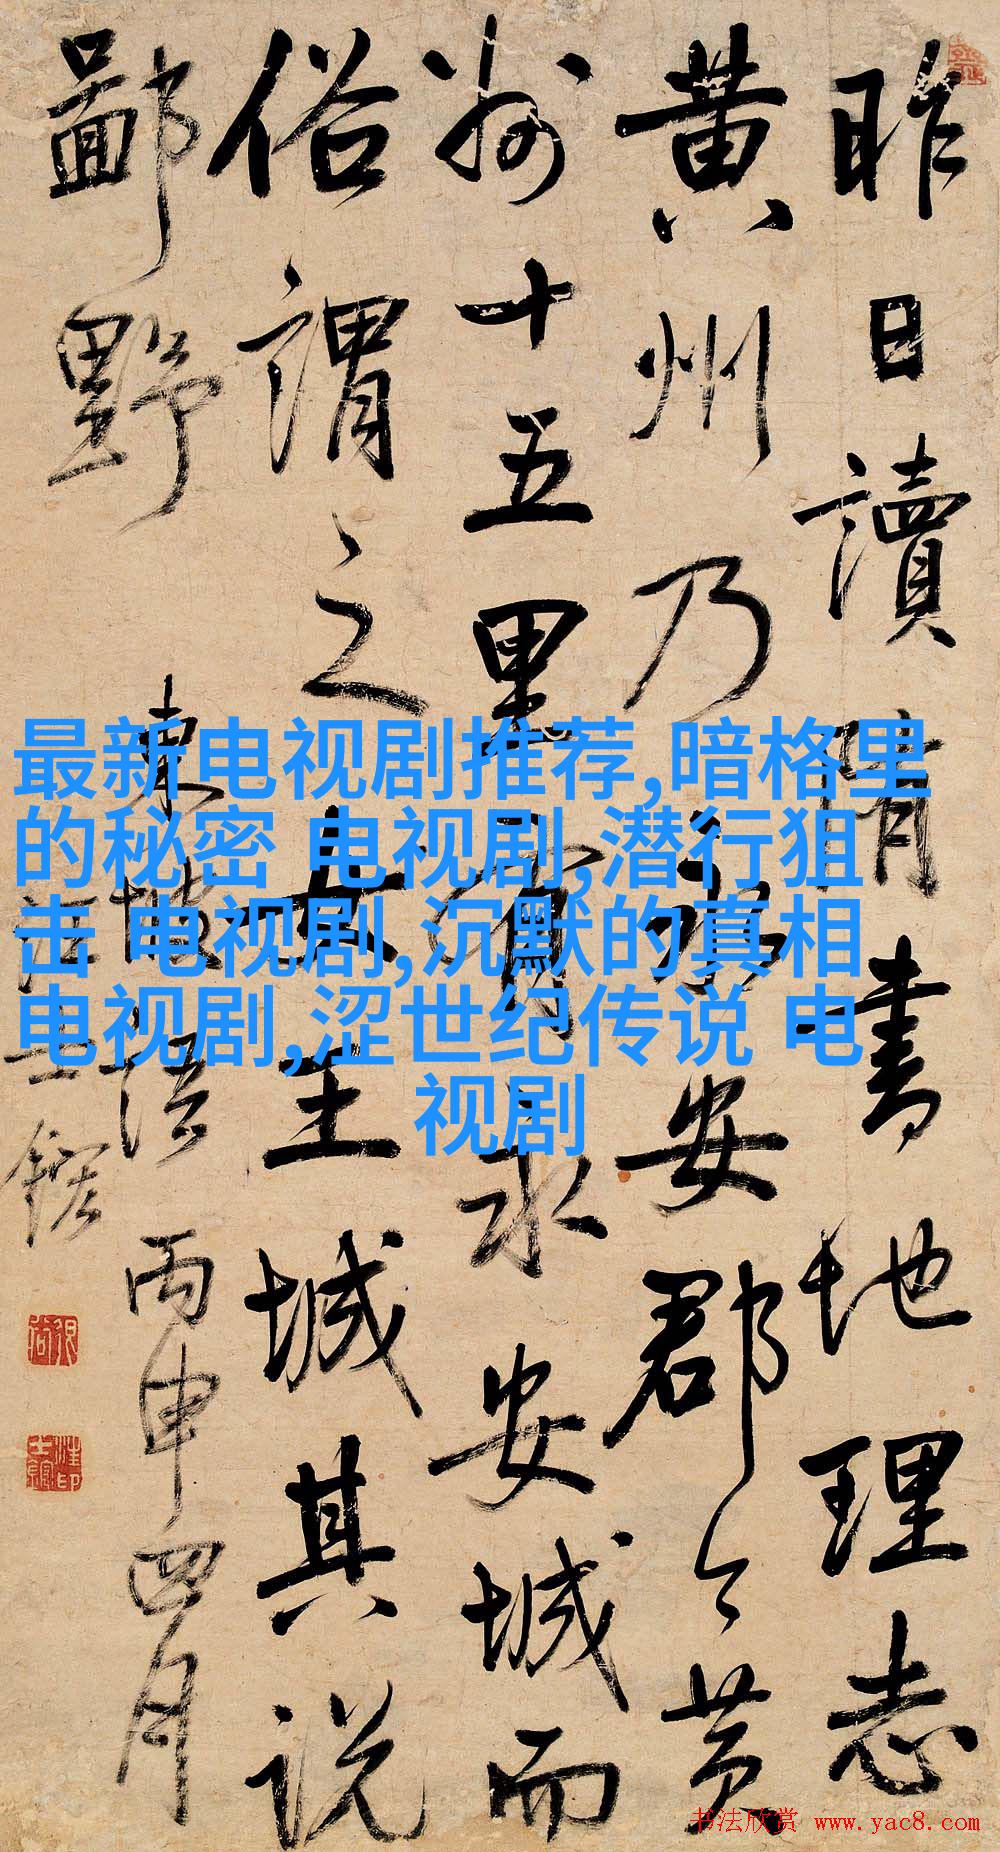 昨日讀隋書地理志
黄州乃永安郡今黄
州十五里有永安城而
俗謂之女王城其説
鄙野
東坡語 丙申四月
汪士鋐
最新电视剧推荐,暗格里
的秘密 电视剧,潜行狙
击 电视剧,沉默的真相
电视剧,涩世纪传说 电
视剧
书法欣赏 www.yac8.com